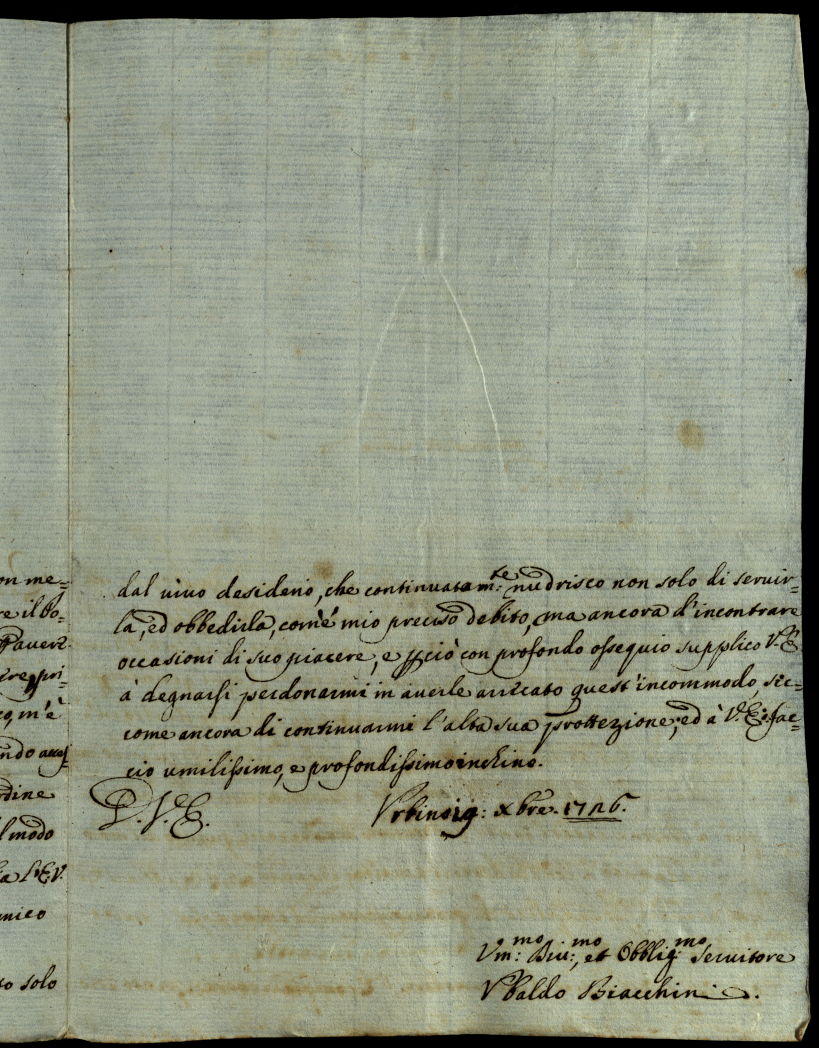 on me=
re il Po=
avert
pri=
com'è
ndo
rdine
l modo
ia l'E.V.
mico
to solo
dal vivo desiderio, che continuatam:te nudrisco non solo di servir=
la, ed obbedirla, com'è mio preciso debito, ma ancora d'incontrare
occasioni di suo piacere, e p ciò con profondo ossequio supplico V.E.
à degnarsi perdonarmi in averle arrecato quest'incommodo, sic=
come ancora di continuarmi l'alta sua prottezione; ed à V.E. fac=
cio umilissimo, e profondissimo inchino.
D. V. E. Urbino 19: Xbre. 1726.
Um:mo Div:mo, et Obblig:mo Servitore
Ubaldo Biacchini.